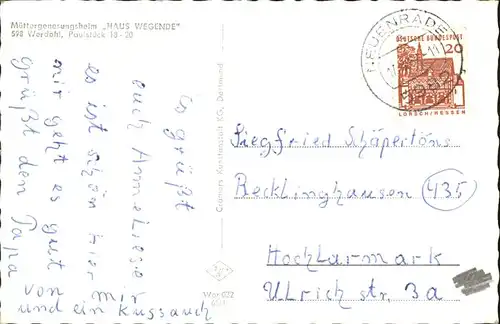 Müttergenesungsheim „HAUS WEGENDE"
598 Werdohl, Paulstück 18 - 20
Es grüßt
euch Anneliese
es ist schön hier
mir geht es gut
grüßt den Papa
von mir
und ein Kuss auch
Cramers Kunstanstalt KG, Dortmund
NEUENRADE
DEUTSCHE BUNDESPOST
20
LORSCH/HESSEN
Siegfried Schäpertöns
Recklinghausen (435)
Hochlarmark
Ulrich str. 3a